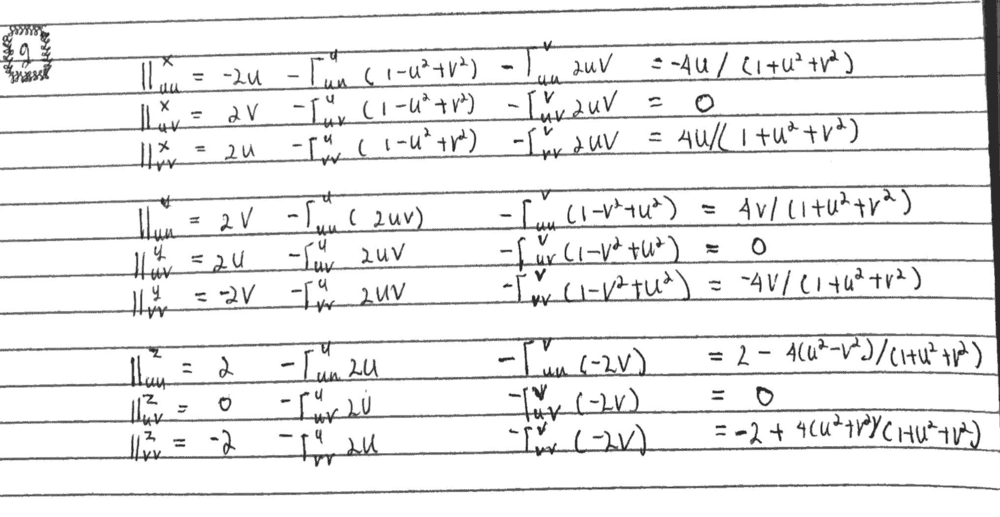 9
II^x_{uu} = -2u - Γ^u_{uu} (1-u²+v²) - Γ^v_{uu} 2uv = -4u / (1+u²+v²)
II^x_{uv} = 2v - Γ^u_{uv} (1-u²+v²) - Γ^v_{uv} 2uv = 0
II^x_{vv} = 2u - Γ^u_{vv} (1-u²+v²) - Γ^v_{vv} 2uv = 4u/(1+u²+v²)
II^y_{uu} = 2v - Γ^u_{uu} (2uv) - Γ^v_{uu} (1-v²+u²) = 4v/(1+u²+v²)
II^y_{uv} = 2u - Γ^u_{uv} 2uv - Γ^v_{uv} (1-v²+u²) = 0
II^y_{vv} = -2v - Γ^u_{vv} 2uv - Γ^v_{vv} (1-v²+u²) = -4v/(1+u²+v²)
II^z_{uu} = 2 - Γ^u_{uu} 2u - Γ^v_{uu} (-2v) = 2 - 4(u²-v²)/(1+u²+v²)
II^z_{uv} = 0 - Γ^u_{uv} 2u - Γ^v_{uv} (-2v) = 0
II^z_{vv} = -2 - Γ^u_{vv} 2u - Γ^v_{vv} (-2v) = -2 + 4(u²+v²)/(1+u²+v²)